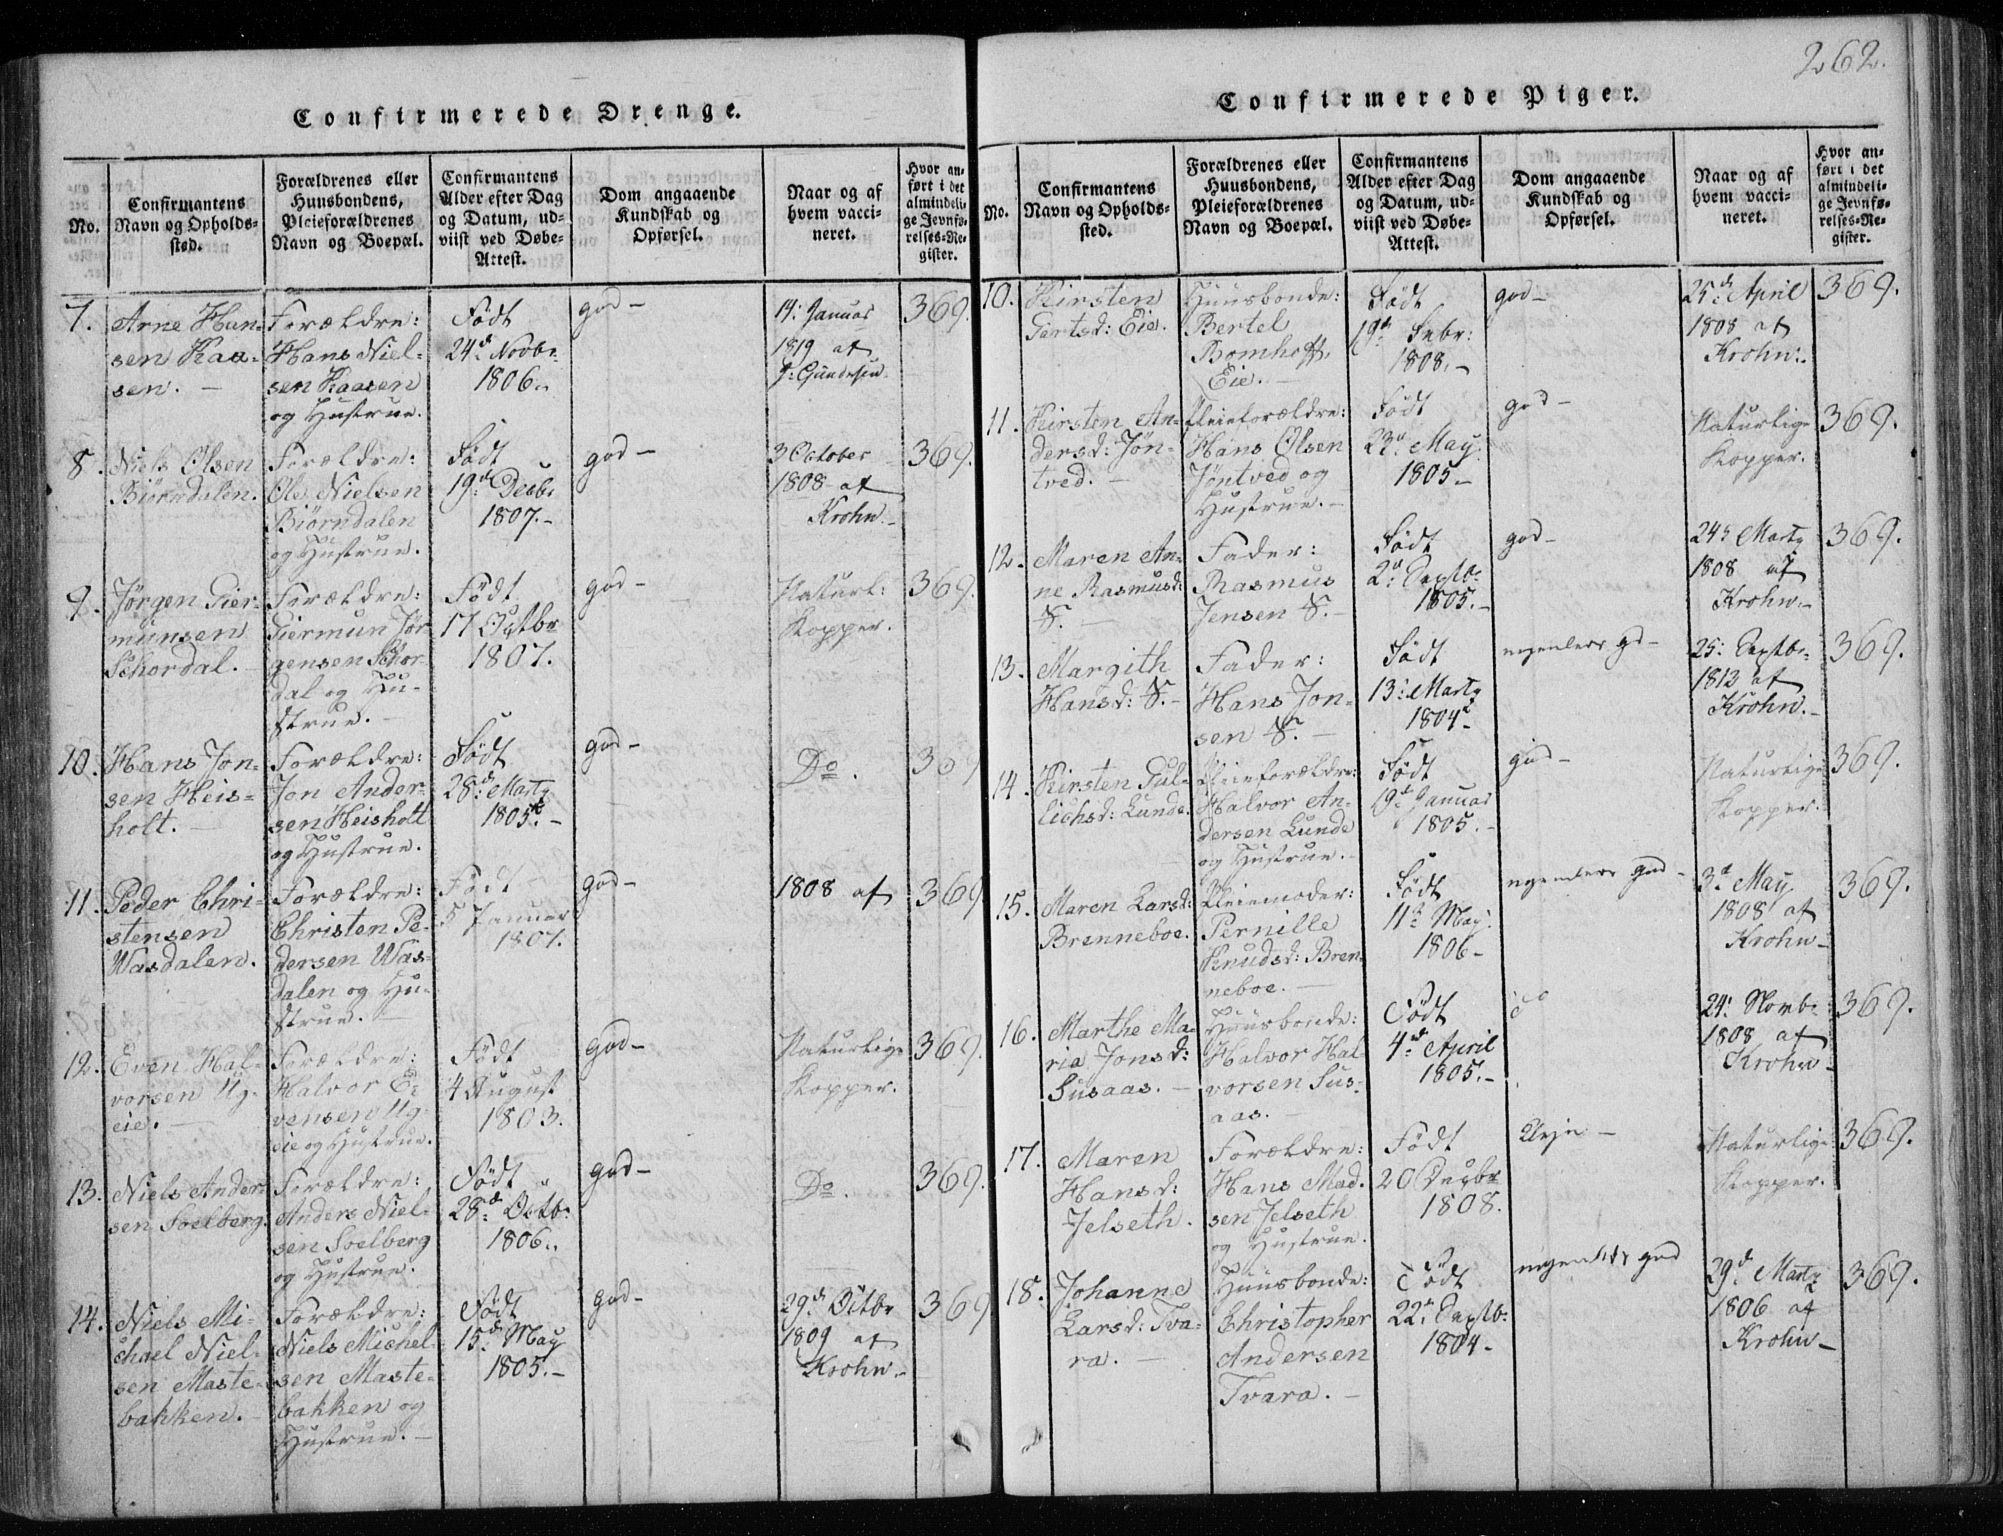 262.
Confirmerede Drenge.
No.
Confirmantens
Navn og Opholds-
sted.
Forældrenes eller
Huusbondens,
Pleieforældrenes
Navn og Boepæl.
Confirmantens
Alder efter Dag
og Datum, ud-
viist ved Døbe-
Attest.
Dom angaaende
Kundskab og
Opførsel.
Naar og af
hvem vacci-
neret.
Hvor an-
ført i det
almindeli-
ge Jevnfø-
relses-Re-
gister.
7.
Arne Han-
sen Kaa-
sen. -
Forældre:
Hans Niel-
sen Kaasen
og Hustrue.
Født
24d: Novbr.
1806.
god -
14: Januar
1819 af
J: Gundesen
369.
8.
Niels Olsen
Biörndalen.
Forældre:
Ole Nielsen
Biörndalen
og Hustrue.
Født
19d: Decbr
1807. -
god -
3 October
1808 af
Krohn. -
369.
9.
Jörgen Gier-
munsen
Schordal. -
Forældre:
Giermun Jör-
gensen Schor-
dal og Hu-
strue. -
Født
17 Octbr
1807.
god -
Naturl:
Kopper.
369.
10.
Hans Jon-
sen Heis-
holt. -
Forældre:
Jon Ander-
sen Heisholt
og Hustrue.
Født
28d: Marty
1805. -
god -
Do.
369
11.
Peder Chri-
stensen
Wasdalen.
Forældre:
Christen Pe-
dersen Was-
dalen og Hu-
strue. -
Født
5 Januar
1807.
god -
1808 af
369
12.
Even Hal-
vorsen Ug-
eie. -
Forældre:
Halvor E-
vensen Ug-
eie og Hustrue.
Født
4 August
1803.
god -
Naturlige
Kopper.
369.
13.
Niels Ander-
sen Soelberg.
Forældre:
Anders Niel-
sen Soelberg
og Hustrue.
Født
28d: Octbr.
1806.
god -
Do.
369.
14.
Niels Mi-
chael Niel-
sen Maste-
bakken. -
Forældre:
Niels Michel-
sen Maste-
bakken og
Hustrue. -
Født
15d: May
1805. -
god -
29d: Octbr
1809 af
Krohn. -
369
Confirmerede Piger.
No.
Confirmantens
Navn og Opholds-
sted.
Forældrenes eller
Huusbondens,
Pleieforældrenes
Navn og Boepæl.
Confirmantens
Alder efter Dag
og Datum, ud-
viist ved Døbe-
Attest.
Dom angaaende
Kundskab og
Opførsel.
Naar og af
hvem vacci-
neret.
Hvor an-
ført i det
almindeli-
ge Jevnfø-
relses-Re-
gister.
10.
Kirsten
Gertsd: Eie.
Huusbonde:
Bertel
Bomhoff,
Eie. -
Født
19d: Febr:
1808. -
god -
25d: April
1808 af
Krohn.
369.
11.
Kirsten An-
dersd: Jön-
tved. -
Pleieforældre:
Hans Olsen
Jöntved og
Hustrue. -
Født
23d: May
1805 -
god -
Naturlige
Kopper.
369.
12.
Maren An-
ne Rasmusd:
S. -
Fader:
Rasmus
Jensen S. -
Født
2d: Septbr.
1805. -
god -
24d: Marty
1808 af
Krohn. -
369.
13.
Margith
Hansd: S. -
Fader:
Hans Jon-
sen S. -
Født
13: Marty
1804 -
25: Septbr.
1812 af
Krohn. -
369.
14.
Kirsten Gul-
lichsd: Lunde.
Pleieforældre:
Halvor An-
dersen Lunde
og Hustrue. -
Født
19d: Januar
1805. -
god -
Naturlige
Kopper.
369.
15.
Maren Larsd:
Brenneboe.
Pleiemoder:
Pernille
Knudsd: Bren-
neboe. -
Født
11d: May
1806 -
god -
3d May
1808 af
Krohn -
369.
16.
Marthe Ma-
ria Jonsd:
Susaas. -
Huusbonde:
Halvor Hal-
vorsen Sus-
aas. -
Født
4d: April
1805. -
24: Novbr
1808 af
Krohn -
369.
17.
Maren
Hansd:
Jelseth.
Forældre:
Hans Mad-
sen Jelseth
og Hustrue.
Født
20
1808.
Naturlige
Kopper.
369.
18.
Johanne
Larsd: Tva-
ra. -
Huusbonde:
Christopher
Andersen
Tvara. -
Født
22d: Septbr.
1804 -
god
29d: Marty
1806 af
Krohn -
369.